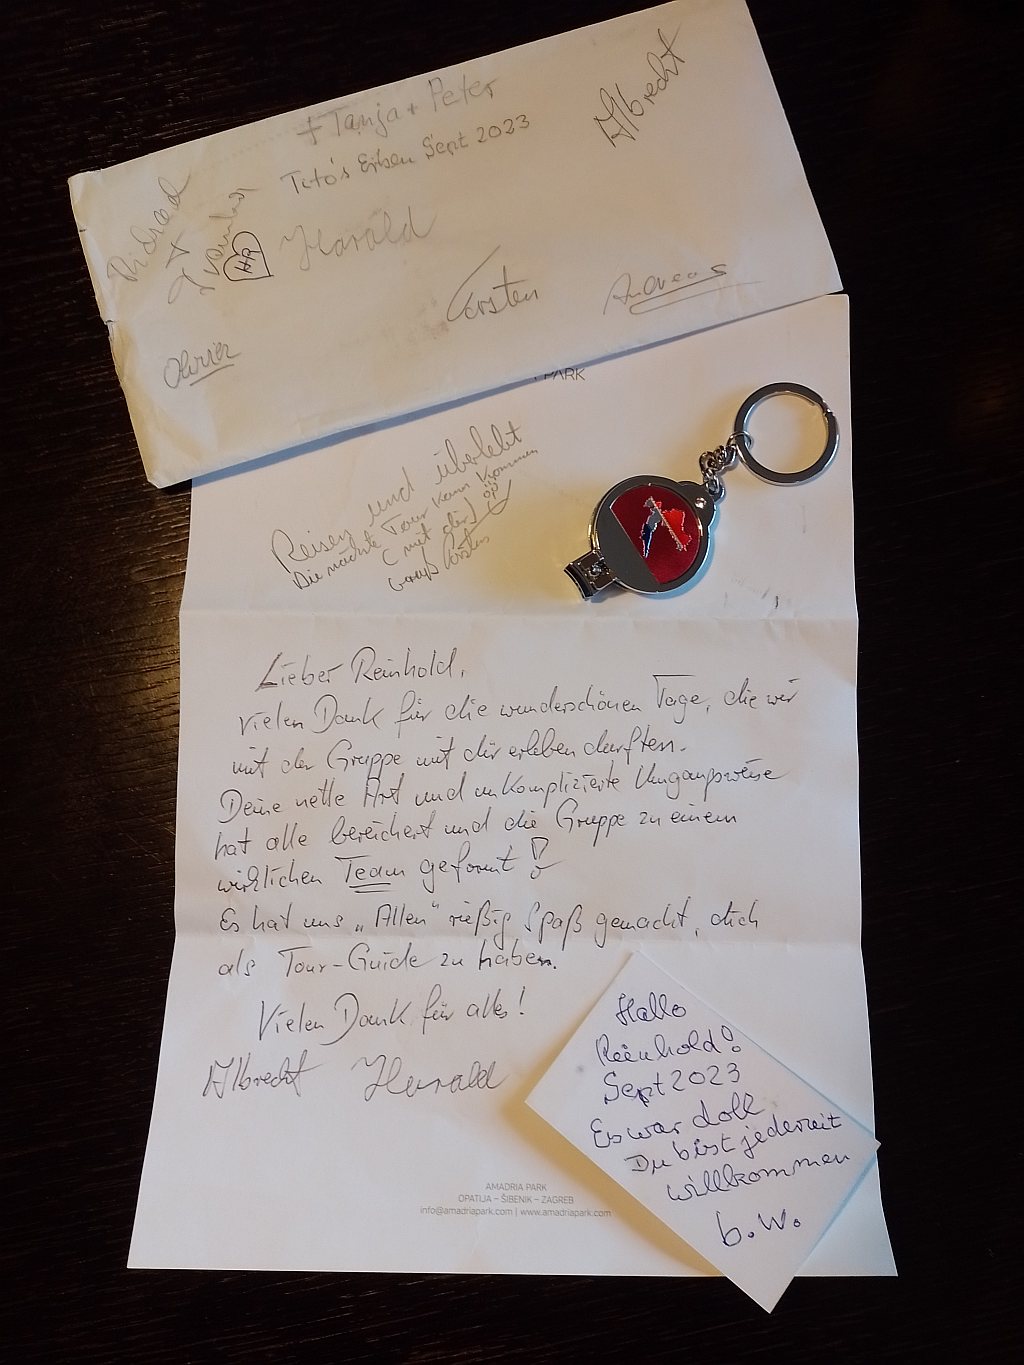 + Tanja + Peter
Tito's Erben Sept 2023
Albrecht
HR
Harald
Carsten
Andreas
Olivier
PARK
Reisen und überlebt
Die nächste Tour kann kommen
(mit dir)
Gruß Carsten
Lieber Reinhold,
vielen Dank für die wunderschönen Tage, die wir
mit der Gruppe mit dir erleben durften.
Deine nette Art und unkomplizierte Umgangsweise
hat alle bereichert und die Gruppe zu einem
wirklichen Team geformt!
Es hat uns „Allen“ rießig Spaß gemacht, dich
als Tour-Guide zu haben.
Vielen Dank für alles!
Albrecht Harald
Hallo
Reinhold!
Sept 2023
Es war doll
Du bist jederzeit
willkommen
b.w.
AMADRIA PARK
OPATIJA – ŠIBENIK – ZAGREB
info@amadriapark.com | www.amadriapark.com